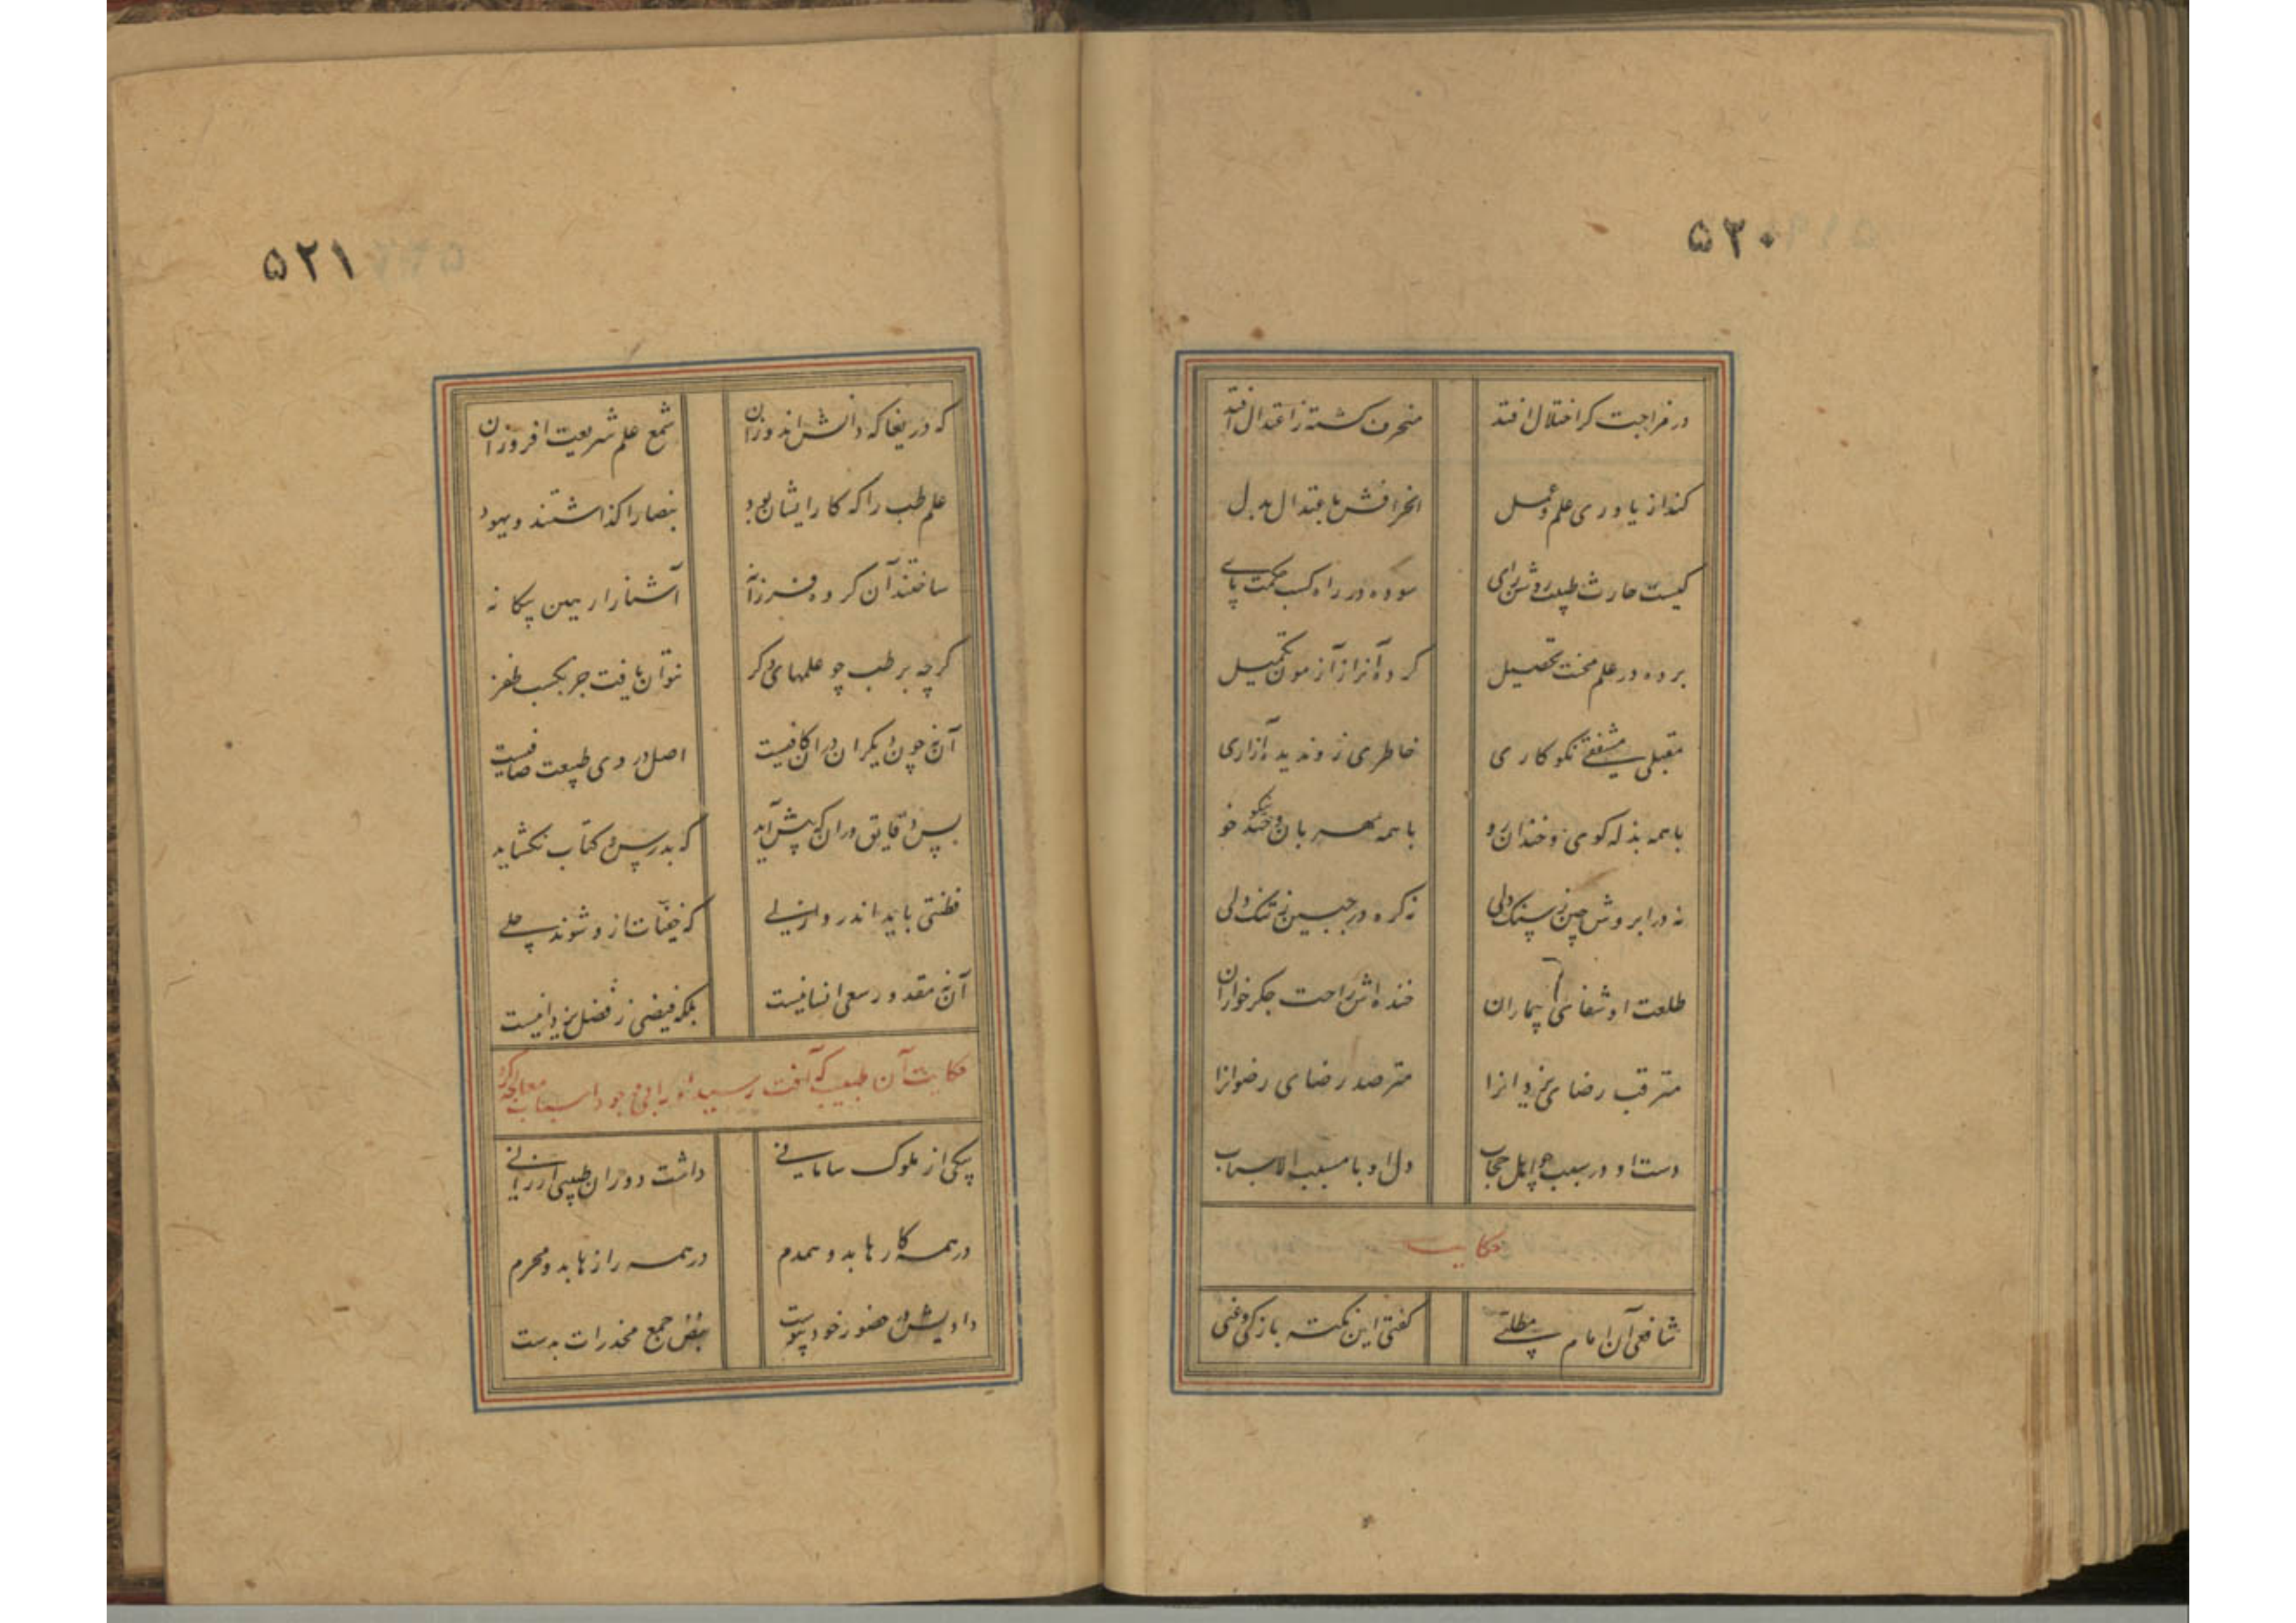 ۵۲۰
در مزاجت کر اختلال افتد منحرف کشته ز اعتدال افتد
کند از یاوری علم و عمل انحرافش باعتدال بدل
کیست حارث طبیب روشن رای سوده در راه کسب حکمت پای
برده در علم محنت تحصیل کرده آنرا ز آزمون تکمیل
مقبلی مشفقی نکو کاری خاطری زو ندیده آزاری
با همه بذله کوی و خندان رو با همه مهربان و نیکو خو
نه در ابروش چین ز سنک دلی نه کره در جبین ز تنک دلی
طلعت او شفای بیماران خنده اش راحت جکر خواران
مترقب رضای یزدانرا مترصد رضای رضوانرا
دست او در سبب چو اهل حجاب دل او با مسبب الاسباب
حکایت
شافعی آن امام مطلبی کفتی این نکته با زکی و غبی
۵۲۱
که دریغا که دانش اندوزان شمع علم شریعت افروزان
علم طب را که کار ایشان بود بنصارا کذاشتند و یهود
ساختند آن کروه فرزانه آشنا را ببین بیکانه
کرچه بر طب چو علمهای دکر نتوان یافت جز بکسب ظفر
آن نه چون دیکران در آن کافیست اصل در وی طبیعت صافیست
بس دقایق در آن که پیش آید که بدرس و کتاب نکشاید
فطنتی باید اندر و ازلی که خفیات ازو شوند جلی
آن نه مقدور سعی انسانیست بلکه فیضی ز فضل یزدانیست
حکایت آن طبیب که آفت رسیده را معالجه کرد
یکی از ملوک سامانی داشت دوران طبیبی ارزانی
در همه کارها بدو همدم در همه رازها بدو محرم
دادیش در حضور خود پیوست نبض جمع مخدرات بدست